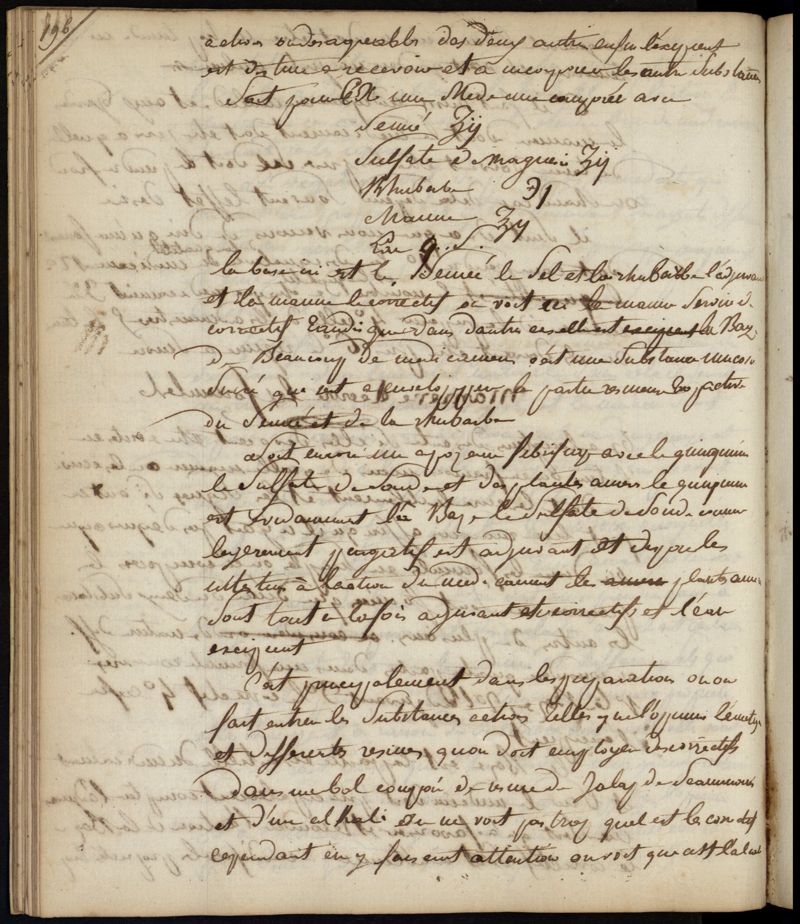 196
action ou desagreable des deux autres enfin l'excipient
est destiné a recevoir et a incorporer les autre Substances
Soit pour EX une Medecine composée avec
Senné ʒij
Sulfate de magnesie ʒij
Rhubarbe ℈1
Manne ʒij
Eau q. S.
la base ici est le Senné le Sel et la rhubarbe l'adjuvant
et la manne le correctif on voit ici la manne Servir de
correctif tandis que dans d'autres cas elle est excipient la Baze
de Beaucoup de medicamens c'est une Substance mucoso
Sucré qui sert a envelopper la partie resineuse trop active
du Senné et de la rhubarbe
Soit encore un apozeme febrifuge avec le quinquina
le Sulfate de Soude et des plantes ameres le quinquina
est evidamment la Baze le Sulfate de Soude comme
legerement purgatif est adjuvant et dispose les
à l'action du medicament les amers plantes ameres
Sont tout à la fois adjuvant et correctifs et l'eau
excipient
C'est principalement dans les preparations ou on
fait entrer les Substances actives telles que l'opium l'emetique
et differentes resines qu'on doit employer des correctifs
dans un bol composé de resine de Jalap de Scammonée
et d'une alkali on ne voit pas trop quel est le correctif
cependant en y faisant attention on voit que c'est l'alcali